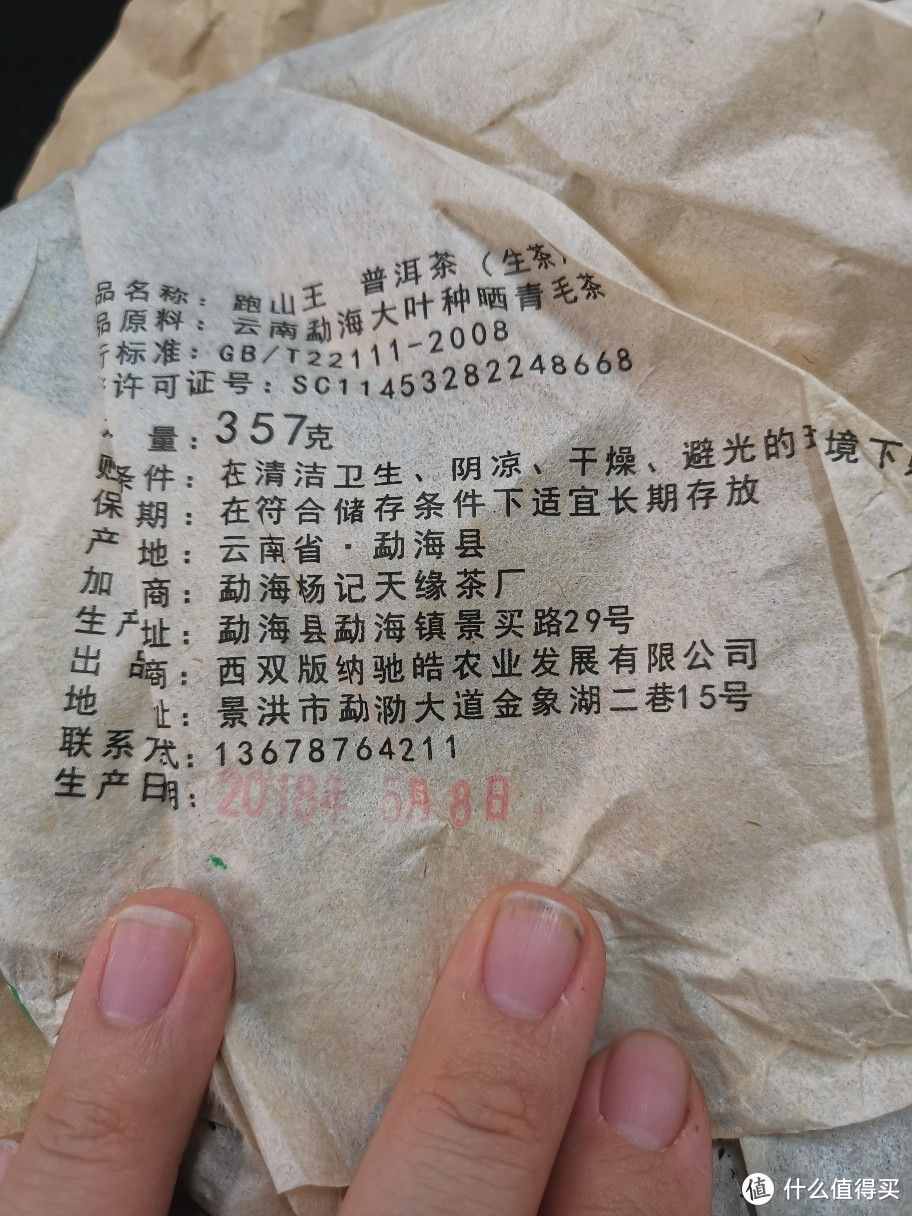 品名称：跑山王 普洱茶（生茶）
品原料：云南勐海大叶种晒青毛茶
行标准：GB/T22111-2008
许可证号：SC11453282248668
量：357克
贮条件：在清洁卫生、阴凉、干燥、避光的环境下
保 期：在符合储存条件下适宜长期存放
产 地：云南省·勐海县
加 商：勐海杨记天缘茶厂
生产 址：勐海县勐海镇景买路29号
出品商：西双版纳驰皓农业发展有限公司
地 址：景洪市勐泐大道金象湖二巷15号
联系方式：13678764211
生产日期：2018年 5月8日
值 什么值得买